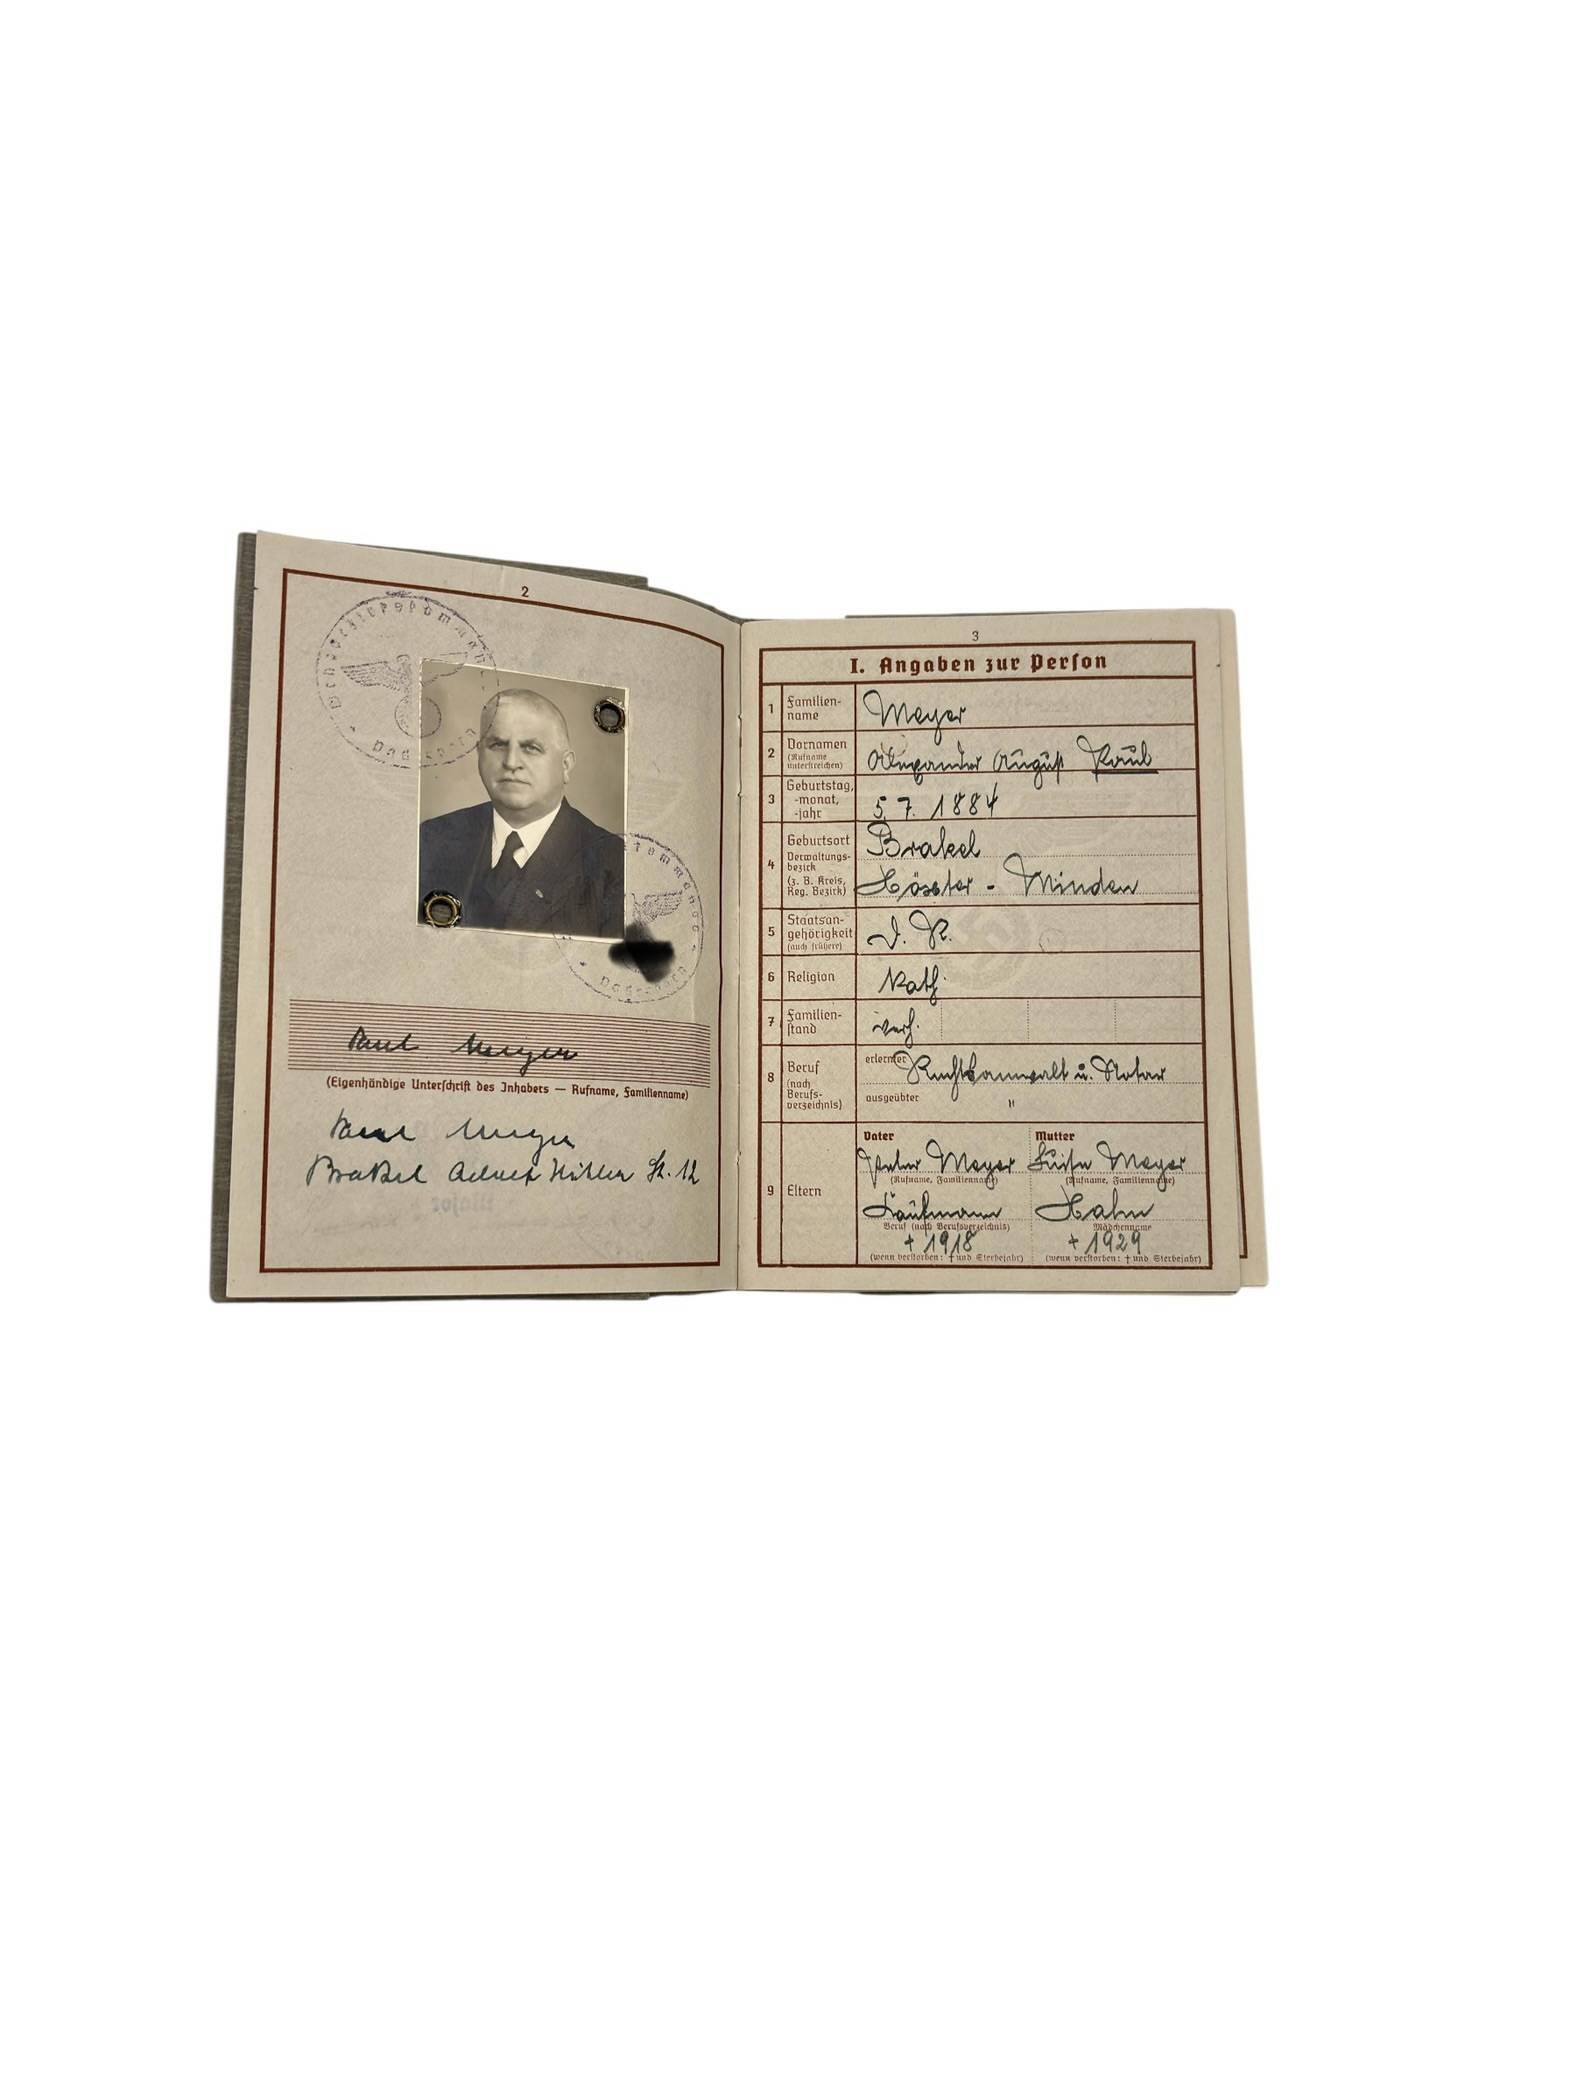 2
Wehrbezirkskommando
Paderborn
kommando
Paderborn
Paul Meyer
(Eigenhändige Unterschrift des Inhabers — Rufname, Familienname)
Paul Meyer
Brakel Adolf Hitler St. 12
3
I. Angaben zur Person
1 Familien-
name
Meyer
2 Vornamen
(Rufname
unterstreichen)
Alexander August Paul
3 Geburtstag,
-monat,
-jahr
5.7.1884
4 Geburtsort
Verwaltungs-
bezirk
(z. B. Kreis,
Reg. Bezirk)
Brakel
Höxter - Minden
5 Staatsan-
gehörigkeit
(auch frühere)
D. R.
6 Religion
Kath.
7 Familien-
stand
verh.
8 Beruf
(nach
Berufs-
verzeichnis)
erlernter Rechtsanwalt u. Notar
ausgeübter "
9 Eltern
Vater
Peter Meyer
(Rufname, Familienname)
Kaufmann
Beruf (nach Berufsverzeichnis)
† 1918
(wenn verstorben: † und Sterbejahr)
Mutter
Luise Meyer
(Rufname, Familienname)
Hahn
Mädchenname
† 1929
(wenn verstorben: † und Sterbejahr)